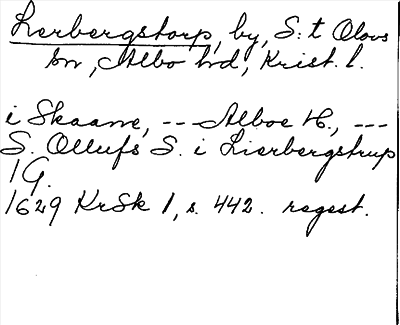 Lerbergstorp, by, S:t Olovs
sn, Albo hd, Krist. l.
i Skaane, -- Alboe H., ---
S. Ollufs S. i Lierbergstrup
1 G.
1629 KrSk 1, s. 442. regest.